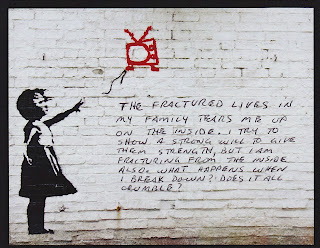 THE FRACTURED LIVES IN
MY FAMILY TEARS ME UP
ON THE INSIDE. I TRY TO
SHOW A STRONG WILL TO GIVE
THEM STRENGTH, BUT I AM
FRACTURING FROM THE INSIDE
ALSO. WHAT HAPPENS WHEN
I BREAK DOWN? DOES IT ALL
CRUMBLE?